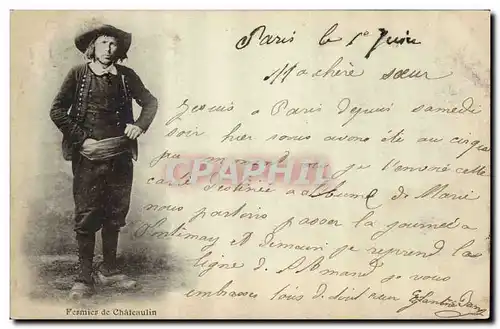 Paris le 1er Juin
Ma chère sœur
Je suis a Paris depuis samedi
soir hier nous avons été au cirque
je l'envoie cette
carte destinée a l'album de Marie
nous partons passer la journée a
Pontinsay et demain je reprend la
ligne de St Amand je vous
embrasse tous
CPAPHIL
Fermier de Châteaulin